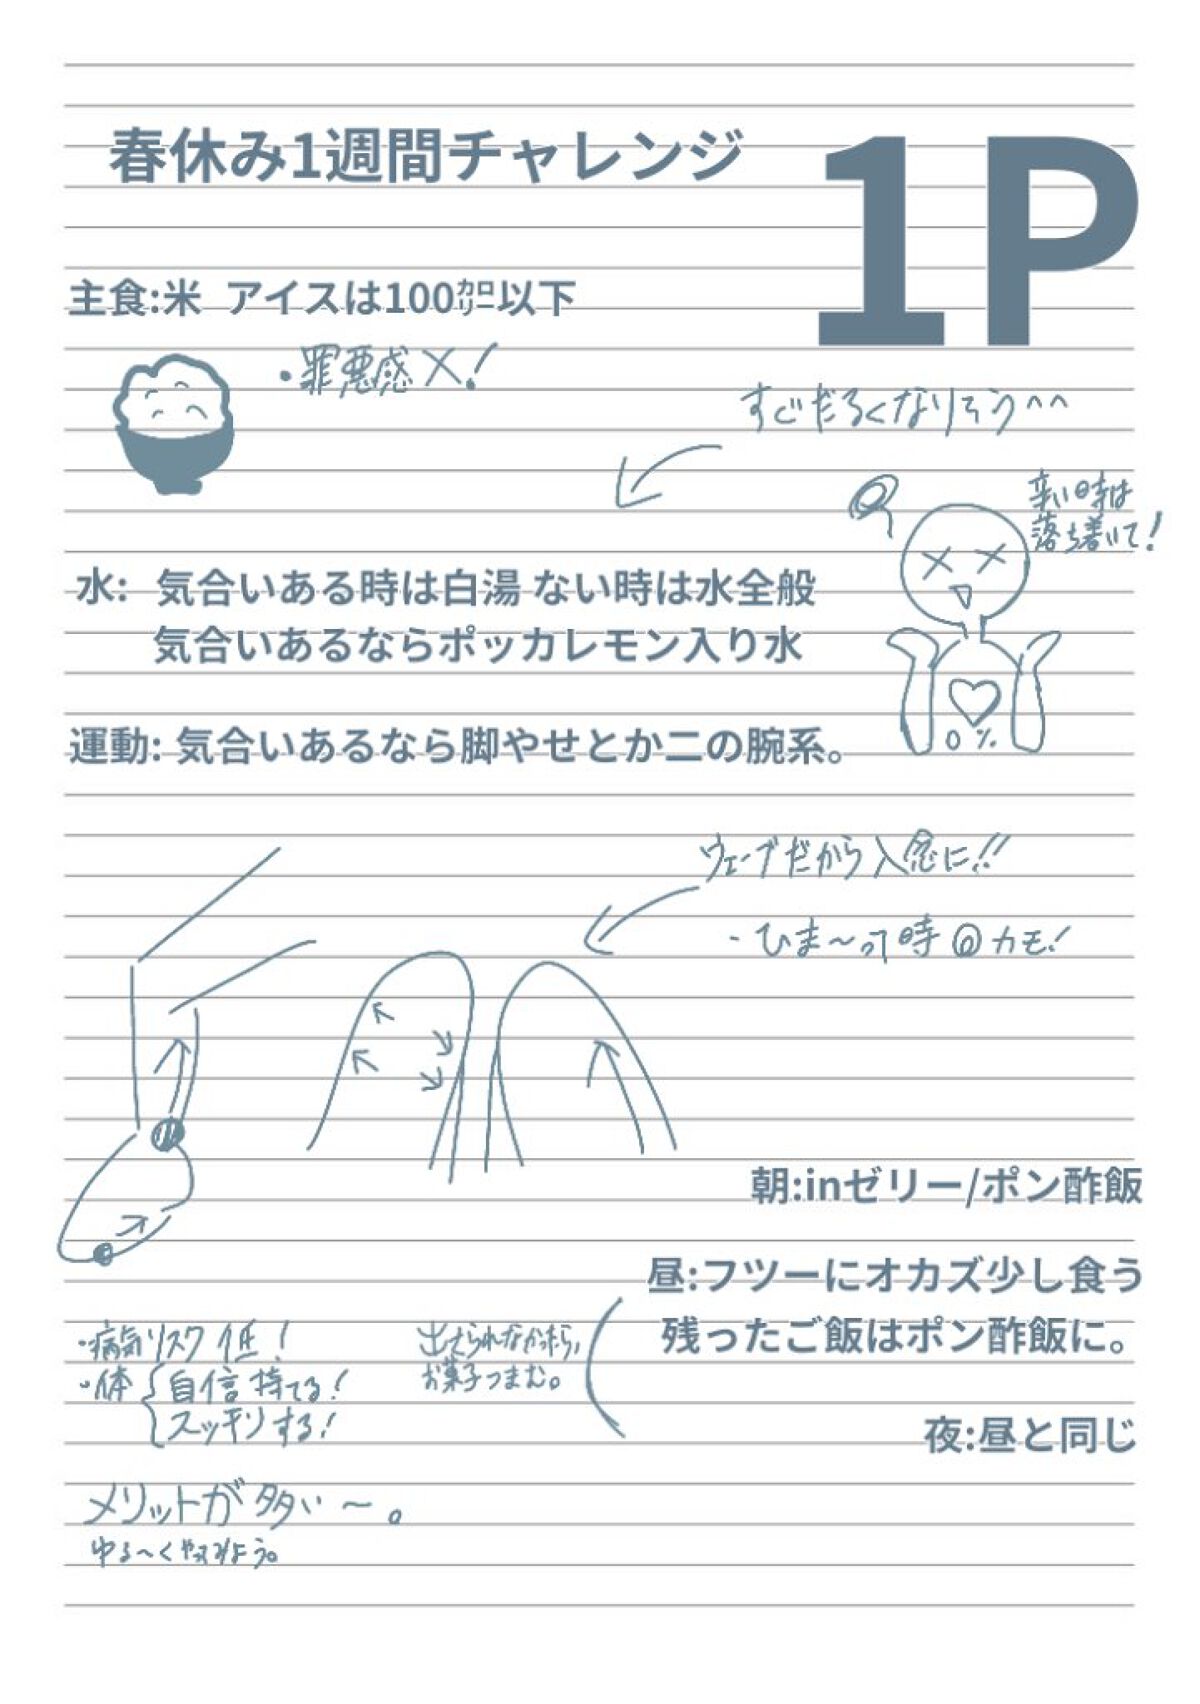 春休み1週間チャレンジ
1P
主食:米 アイスは100㌍以下
・罪悪感×!
すぐだるくなりそう^^
辛い時は
落ち着いて!
水: 気合いある時は白湯 ない時は水全般
気合いあるならポッカレモン入り水
0%
運動: 気合いあるなら脚やせとか二の腕系。
ウェーブだから入念に!!
・ひま〜って時 カモ!
朝:inゼリー/ポン酢飯
昼:フツーにオカズ少し食う
残ったご飯はポン酢飯に。
夜:昼と同じ
・病気リスク低!
・体 自信持てる!
スッキリする!
られなかったら、
お菓子つまむ。
メリットが多い〜。
ゆる〜くやってみよう。